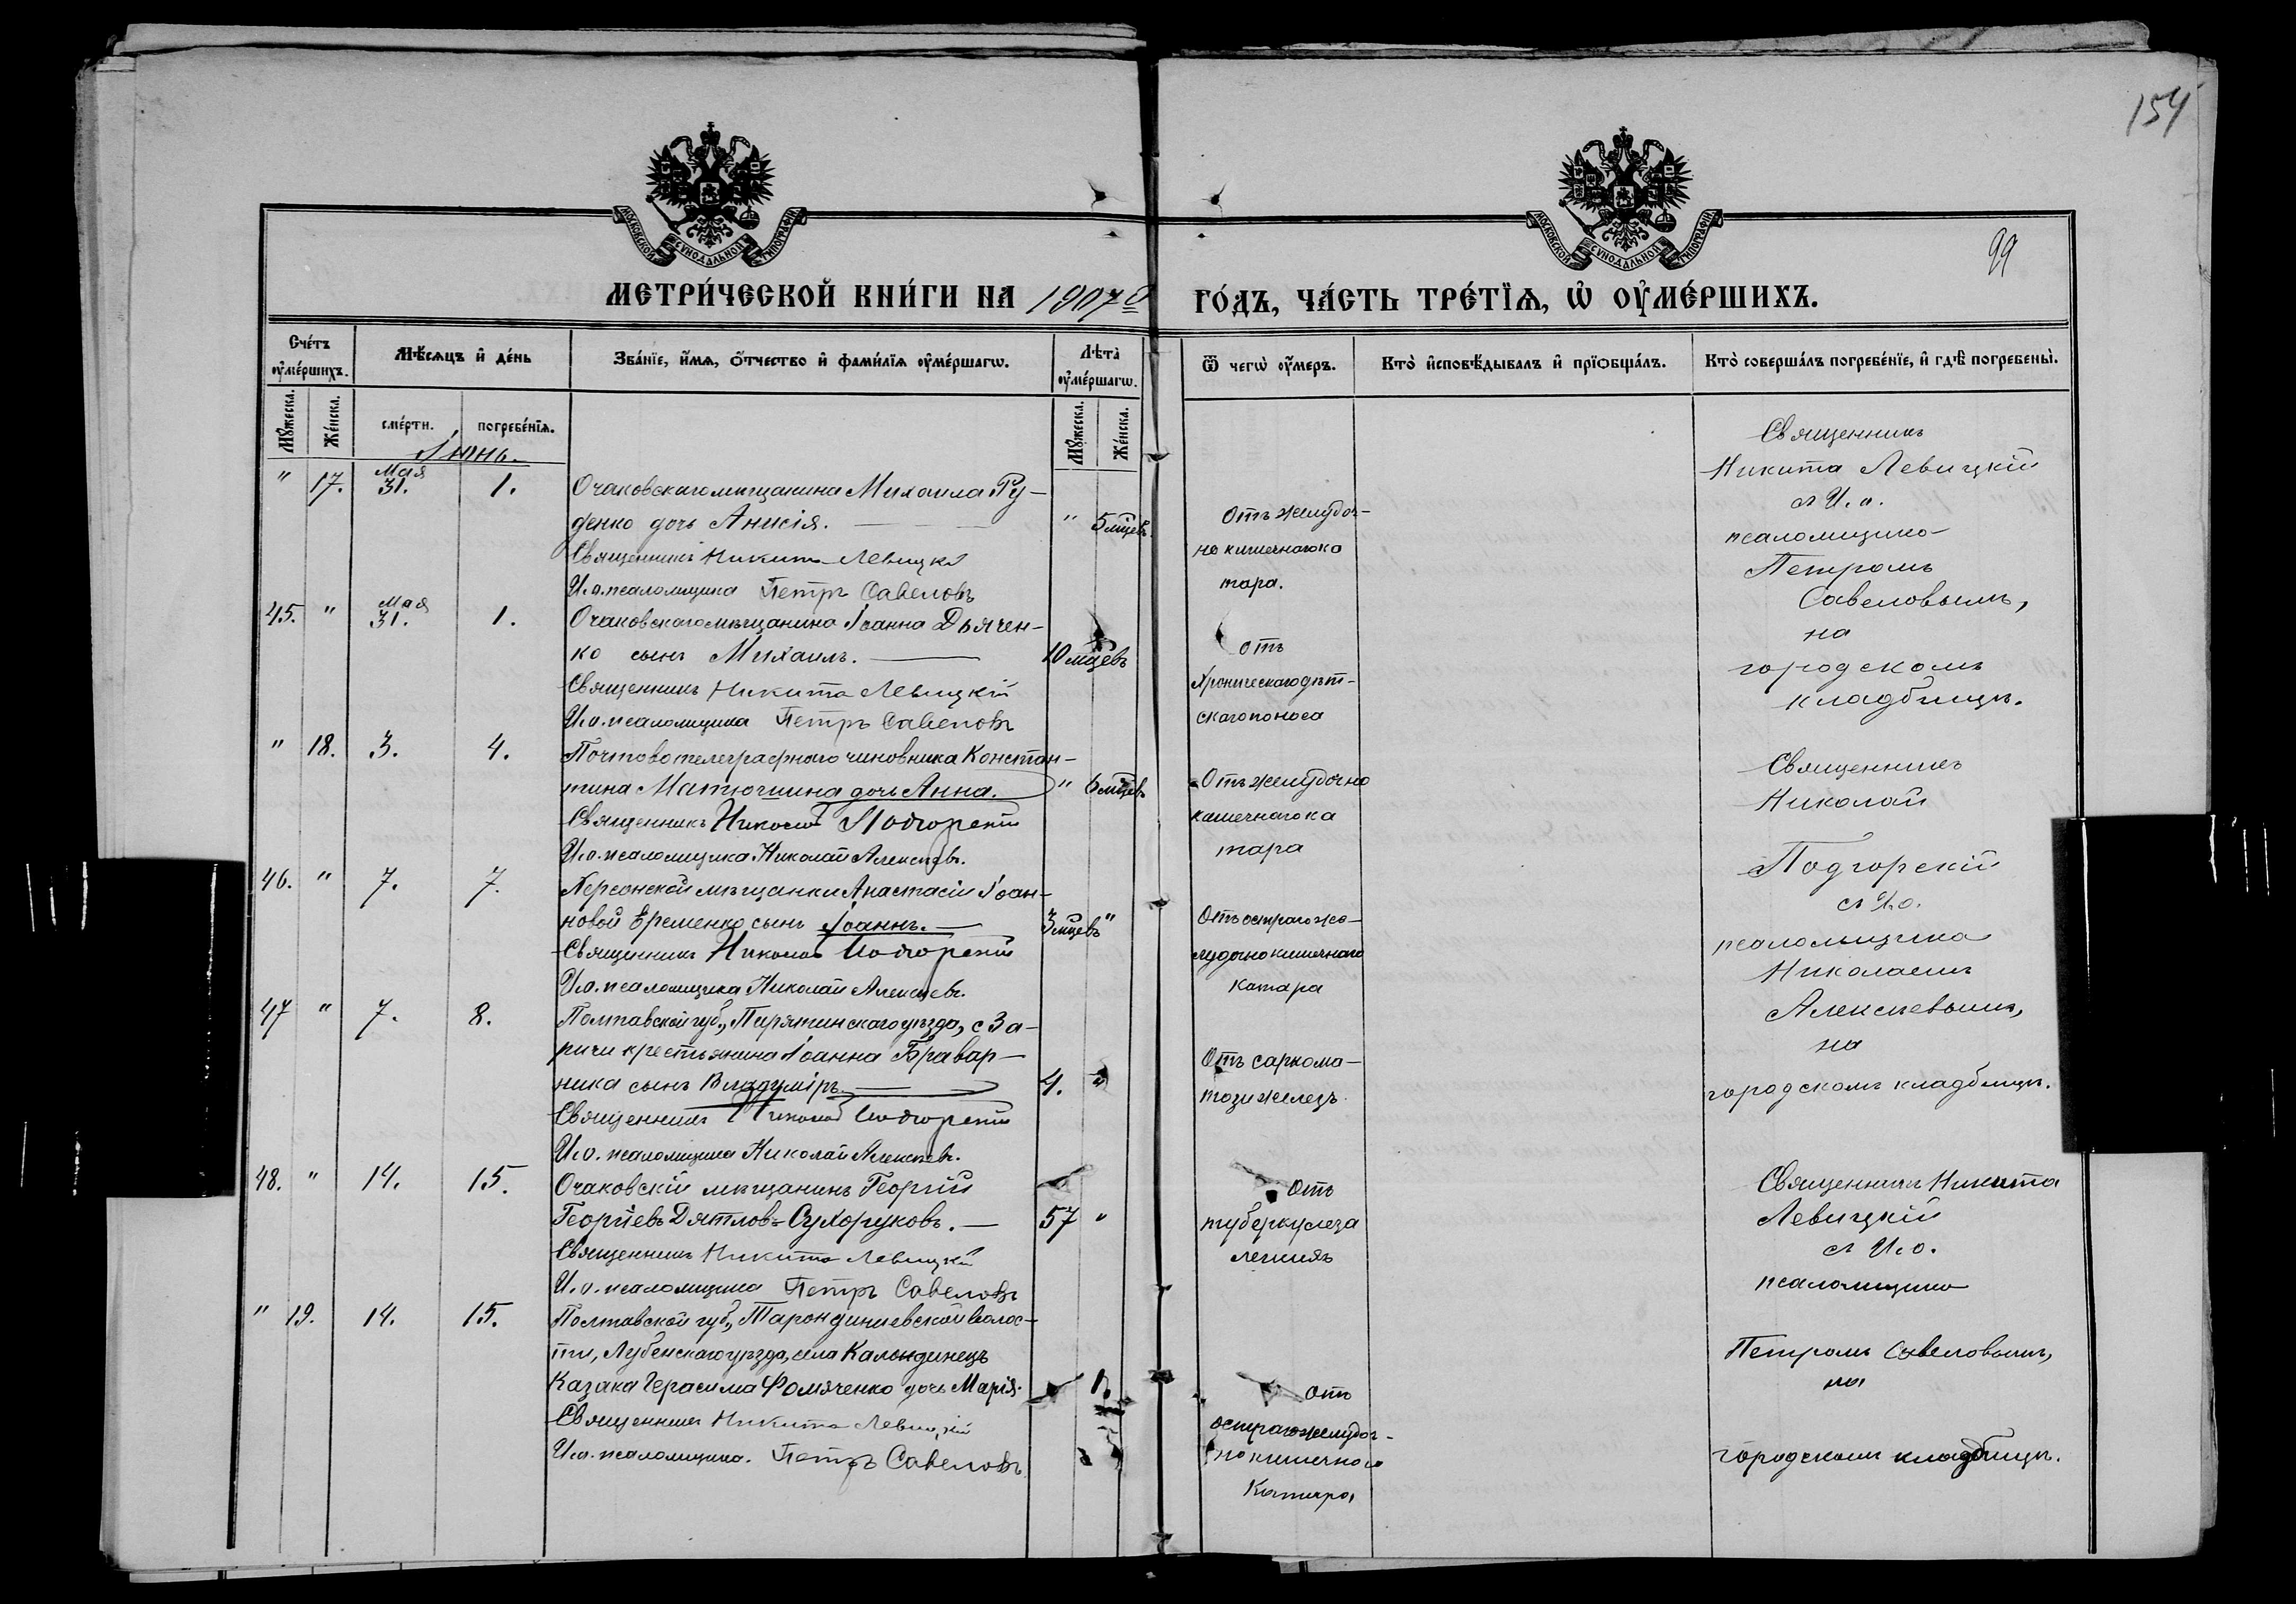 154
99
МОСКОВСКОЙ СѴНОДАЛЬНОЙ ТИПОГРАФІИ
МОСКОВСКОЙ СѴНОДАЛЬНОЙ ТИПОГРАФІИ
МЕТРИ́ЧЕСКОЙ КНИ́ГИ НА 1907й ГО́ДЪ, ЧА́СТЬ ТРЕ́ТІѦ, Ѡ҆ ОУ҆МЕ́РШИХЪ.
Сче́тъ оу҆ме́ршихъ.
Мѣ́сѧцъ и҆ де́нь
Зва́нїе, и҆́мѧ, о҆́тчество и҆ фами́лїѧ оу҆ме́ршагѡ.
Лѣта̀ оу҆ме́ршагѡ.
Ѿ чегѡ̀ оу҆́меръ.
Кто̀ и҆сповѣ́дывалъ и҆ прїѻбща́лъ.
Кто̀ соверша́лъ погребе́нїе, и҆ гдѣ̀ погребены̀.
Мꙋ́жеска. Же́нска. сме́рти. погребе́нїѧ. Мꙋ́жеска. Же́нска.
Іюнь.
" 17. Мая 31. 1. Очаковскаго мѣщанина Михаила Ру-
денко дочь Анисія. " 5 мцевъ.
Священникъ Никита Левицкій
И.о. псаломщика Петръ Савеловъ
Отъ желудоч-
но кишечнаго ка
тара.
Священникъ
Никита Левицкій
съ И.о.
псаломщика
Петромъ
Савеловымъ,
на
городскомъ
кладбищѣ.
45. " Мая 31. 1. Очаковскаго мѣщанина Іоанна Дьячен-
ко сынъ Михаилъ. 10 мцевъ
Священникъ Никита Левицкій
И.о. псаломщика Петръ Савеловъ
Отъ
хроническаго дѣт-
скаго поноса
" 18. 3. 4. Почтово телеграфного чиновника Констан-
тина Матюшина дочь Анна. " 6 мцевъ
Священникъ Николай Подгорскій
И.о. псаломщика Николай Алексѣевъ.
Отъ желудочно
кишечнаго ка
тара
Священникъ
Николай
Подгорскій
съ И.о.
псаломщика
Николаемъ
Алексѣевымъ,
на
городскомъ кладбищѣ.
46. " 7. 7. Херсонской мѣщанки Анастасіи Іоан-
новой Еременко сынъ Іоаннъ. 3 мцевъ "
Священникъ Николай Подгорскій
И.о. псаломщика Николай Алексѣевъ.
Отъ остраго же-
лудочно кишечнаго
катара
47 " 7. 8. Полтавской губ., Пирятинскаго уѣзда, с За-
ричи крестьянина Іоанна Бравар-
ника сынъ Владуміръ. 4. "
Священникъ Николай Подгорскій
И.о. псаломщика Николай Алексѣевъ.
Отъ саркома-
този железъ.
48. " 14. 15. Очаковскій мѣщанинъ Георгій
Георгіевъ Дятлов=Сухоруковъ. 57 "
Священникъ Никита Левицкій
И.о. псаломщика Петръ Савеловъ
Отъ
туберкулеза
легкихъ
Священникъ Никита
Левицкій
съ И.о.
псаломщика
Петромъ Савеловымъ,
на
городскомъ кладбищѣ.
" 19. 14. 15. Полтавской губ.,
ти, Лубенскаго уѣзда, села
Казака Герасима Фомяченко дочь Марія. 1.
Священникъ Никита Левицкій
И.о. псаломщика. Петръ Савеловъ
Отъ
остраго желудоч-
но кишечнаго
катара